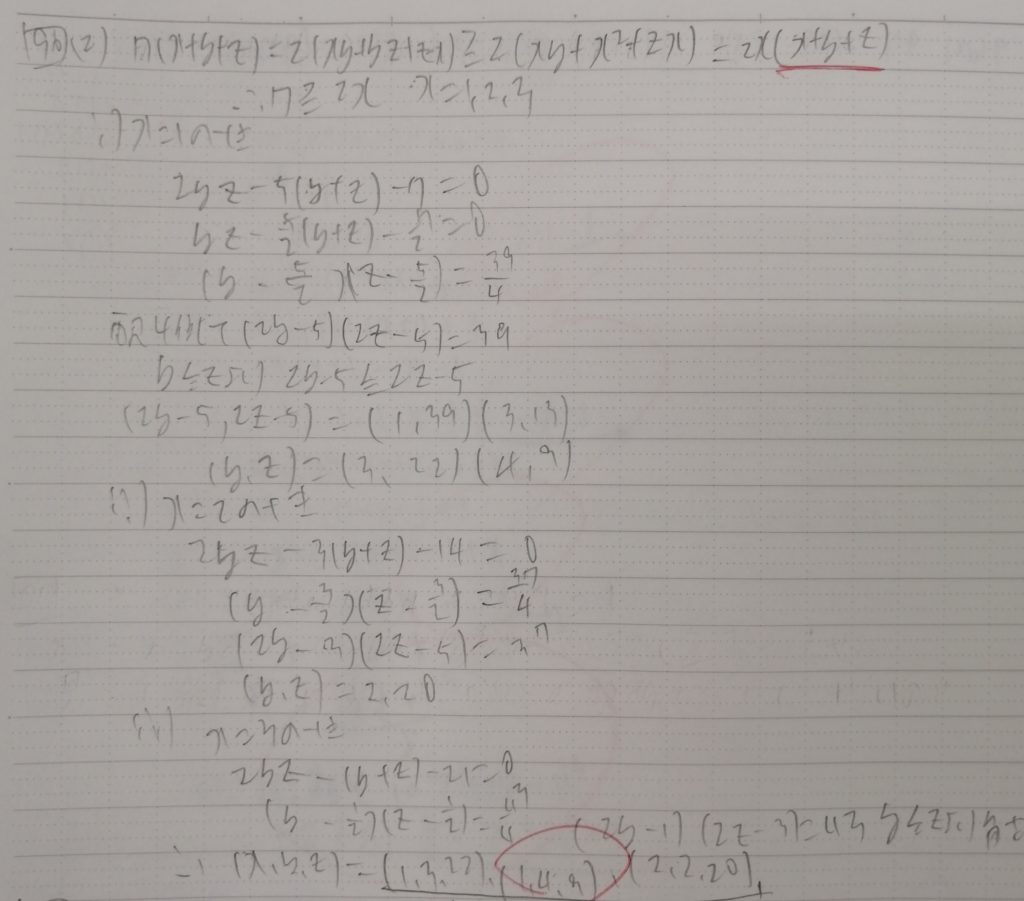 例(2) 7(x+y+z)=2(xy+yz+zx)≧2(xy+x²+zx)=2x(x+y+z)
∴7≧2x x=1,2,3
i) x=1のとき
2yz-5(y+z)-7=0
yz-5/2(y+z)-7/2=0
(y-5/2)(z-5/2)=39/4
両辺4倍して(2y-5)(2z-5)=39
y≦zより 2y-5≦2z-5
(2y-5,2z-5)=(1,39)(3,13)
(y,z)=(3,22)(4,9)
ii) x=2のとき
2yz-3(y+z)-14=0
(y-3/2)(z-3/2)=37/4
(2y-3)(2z-5)=37
(y,z)=2,20
iii) x=3のとき
2yz-(y+z)-21=0
(y-1/2)(z-1/2)=43/4 (2y-1)(2z-3)=43 y≦zより
∴(x,y,z)=(1,3,22),(1,4,9),(2,2,20)